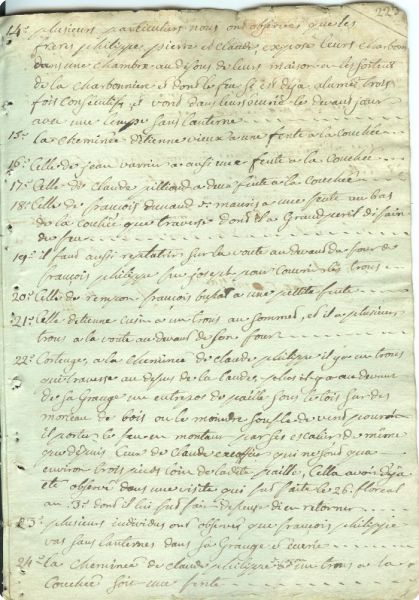 223
14° plusieurs particuliers nous ont observés que les
frères philippe pierre et claude, expose leurs charbon
dans une chambre au disous de leurs maison a les sorteur
de la charbonniere et dont le feu se est déja alumée trois
fois consécutifs, et vont dans leurs Ecurie les devant jour
avec une lampe sans lanterne
15° La cheminée d'étienne vieux a une fente a la couchée
16° Celle de jean varrin a aussi une fente a la couchée
17° Celle de claude a deux fente a la couchée
18° Celle de françois dunand a une fente au bas
de la couchée que traverse dont il a Grand peril
de feu
19° il faut aussi sur la voute au devant du four de
françois philippe feu joseph pour couvrir les trous
20° Celle de françois a une petitte fente
21° Celle d'étienne a un trous au sommet, et il a plusieur
trous a la voute au devant de son four
22° a la cheminée de claude philippe il y a un trous
que traverse au desus de la plus il y a au devant
de sa Grange un entrepos de paille sous le bois sur des
morceau de bois ou le moindre soufle de vent pourroit
il porter le feu en montant par ses escalier de même
que depuis Ceux de claude qui ne sont qua
environ trois pieds loin de ladite paille, Cella avoit déja
eté observé dans une visite qui fut faite le 26 floreal
an 3e dont il lui fut fait defense d'en retourner
23° plusieurs individus ont observés que françois philippe
vas sans lanternes dans sa Grange
24° La cheminée de claude philippe un trous a la
Couchée soit une fente